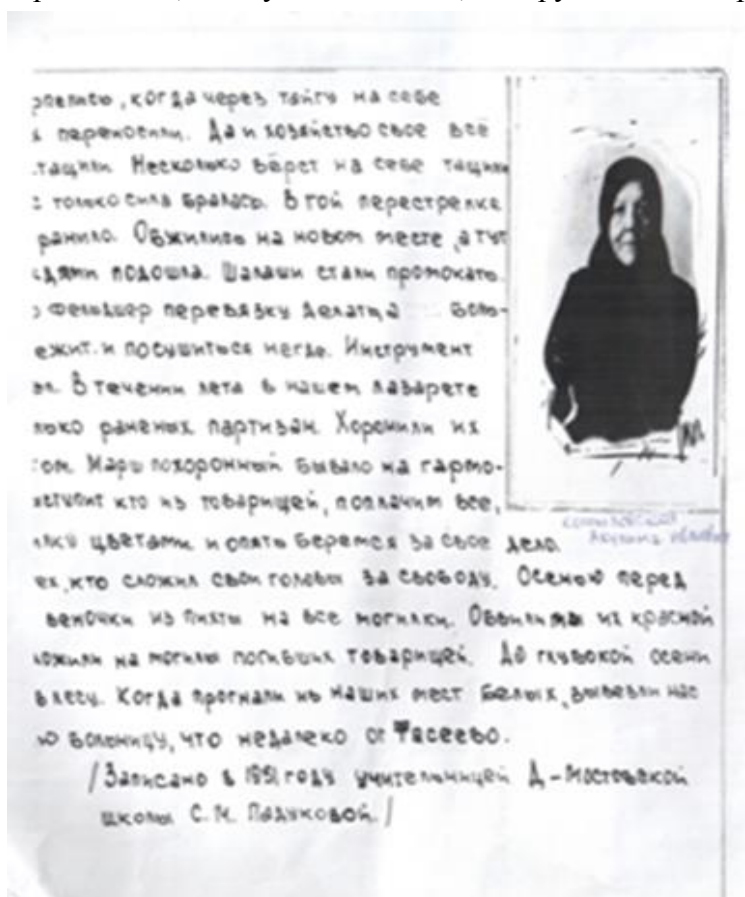 рпелись, когда через тайгу на себе
переносили. Да и хозяйство свое всё
тащили. Несколько вёрст на себе тащили
только сила бралась. В той перестрелке
ранило. Обжились на новом месте, а тут
ждями подошла. Шалаши стали промокать.
фельдшер перевязку делать, а боль-
ежит и посушиться негде. Инструмент
В течении лета в нашем лазарете
лько раненых партизан. Хоронили их
том. Марш похоронный бывало на гармо-
кто из товарищей, поплачим все,
цветами и опять беремся за свое дело.
ех, кто сложил свои головы за свободу. Осенью перед
веночки из пихты на все могилки. Обвили их красной
ложили на могилы погибших товарищей. До глубокой осени
в лесу. Когда прогнали из наших мест белых, вывезли нас
ю больницу, что недалеко от Тасеево.
/Записано в 1951 году учительницей Д-Мостовской
школы С.М. Падуковой./